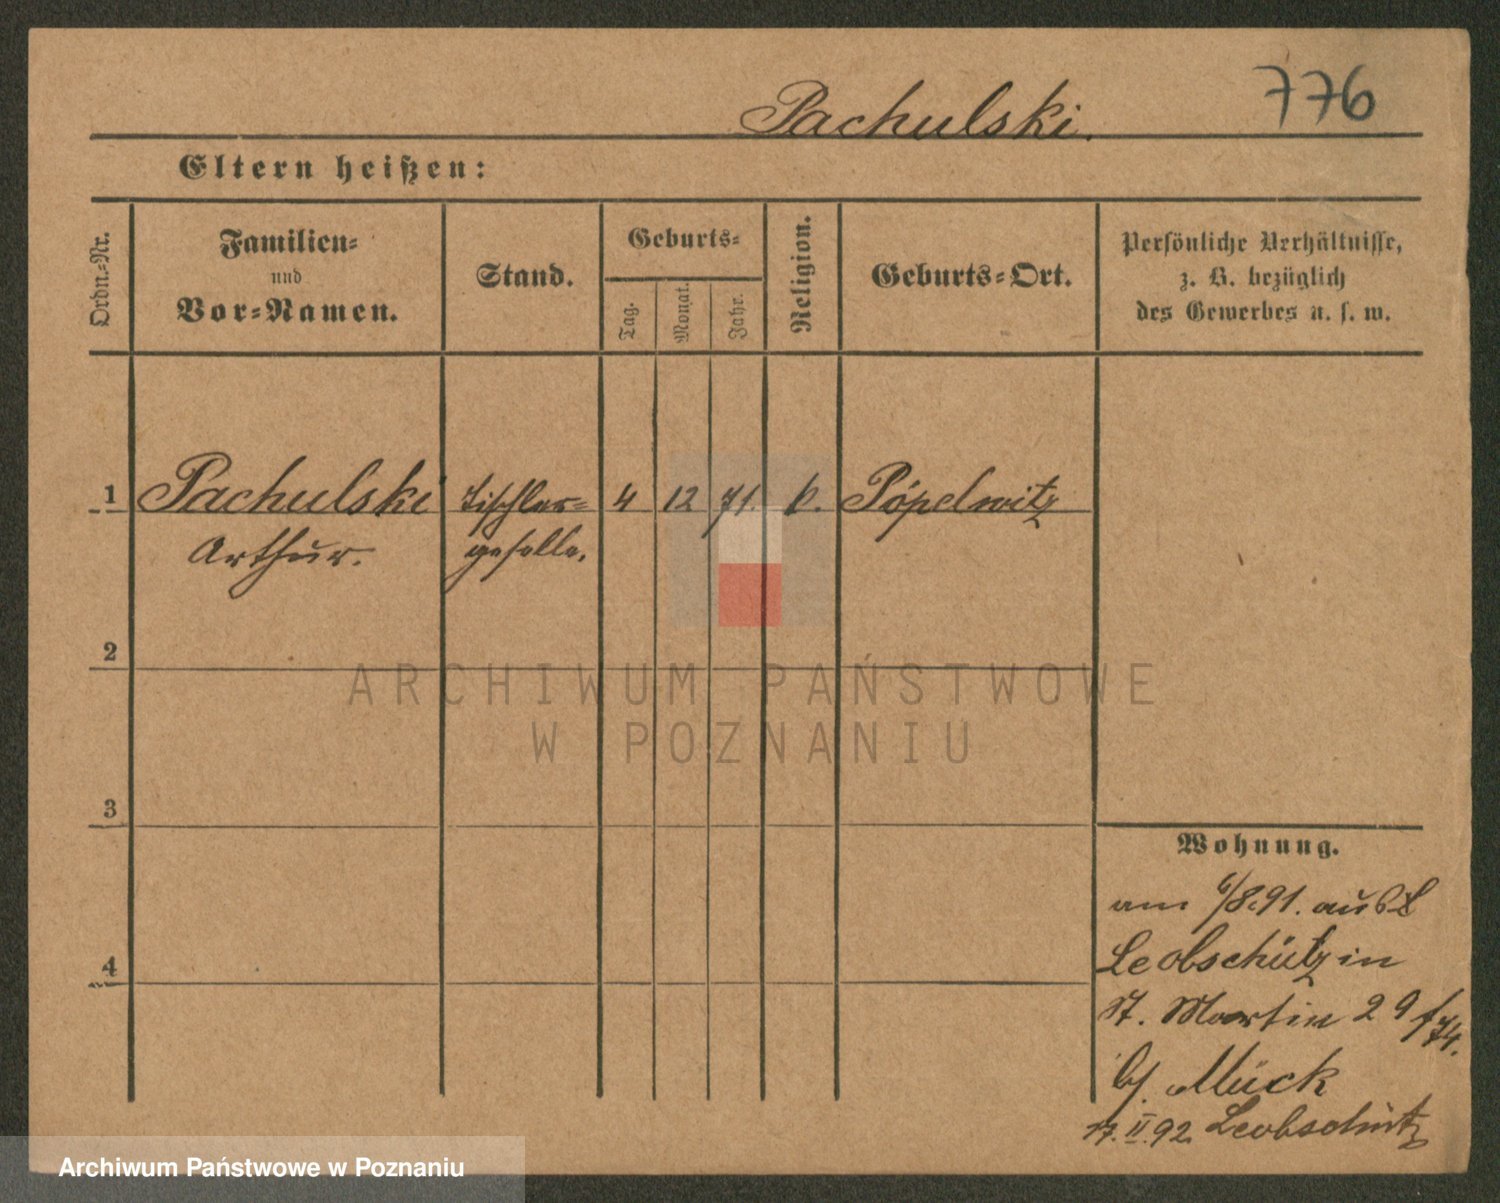 776
Pachulski.
Eltern heißen:
Ordn.-Nr.
Familien-
und
Vor-Namen.
Stand.
Geburts-
Tag.
Monat.
Jahr.
Religion.
Geburts-Ort.
Persönliche Verhältnisse,
z. B. bezüglich
des Gewerbes u. s. w.
1 Pachulski Tischler- 4 12 71. k. Pöpelwitz
Arthur. geselle.
2
3
4
Wohnung.
am 6/8.91. aus
Leobschütz in
St. Martin 29
b/ Mück
17.II.92. Leobschütz
ARCHIWUM PAŃSTWOWE
W POZNANIU
Archiwum Państwowe w Poznaniu